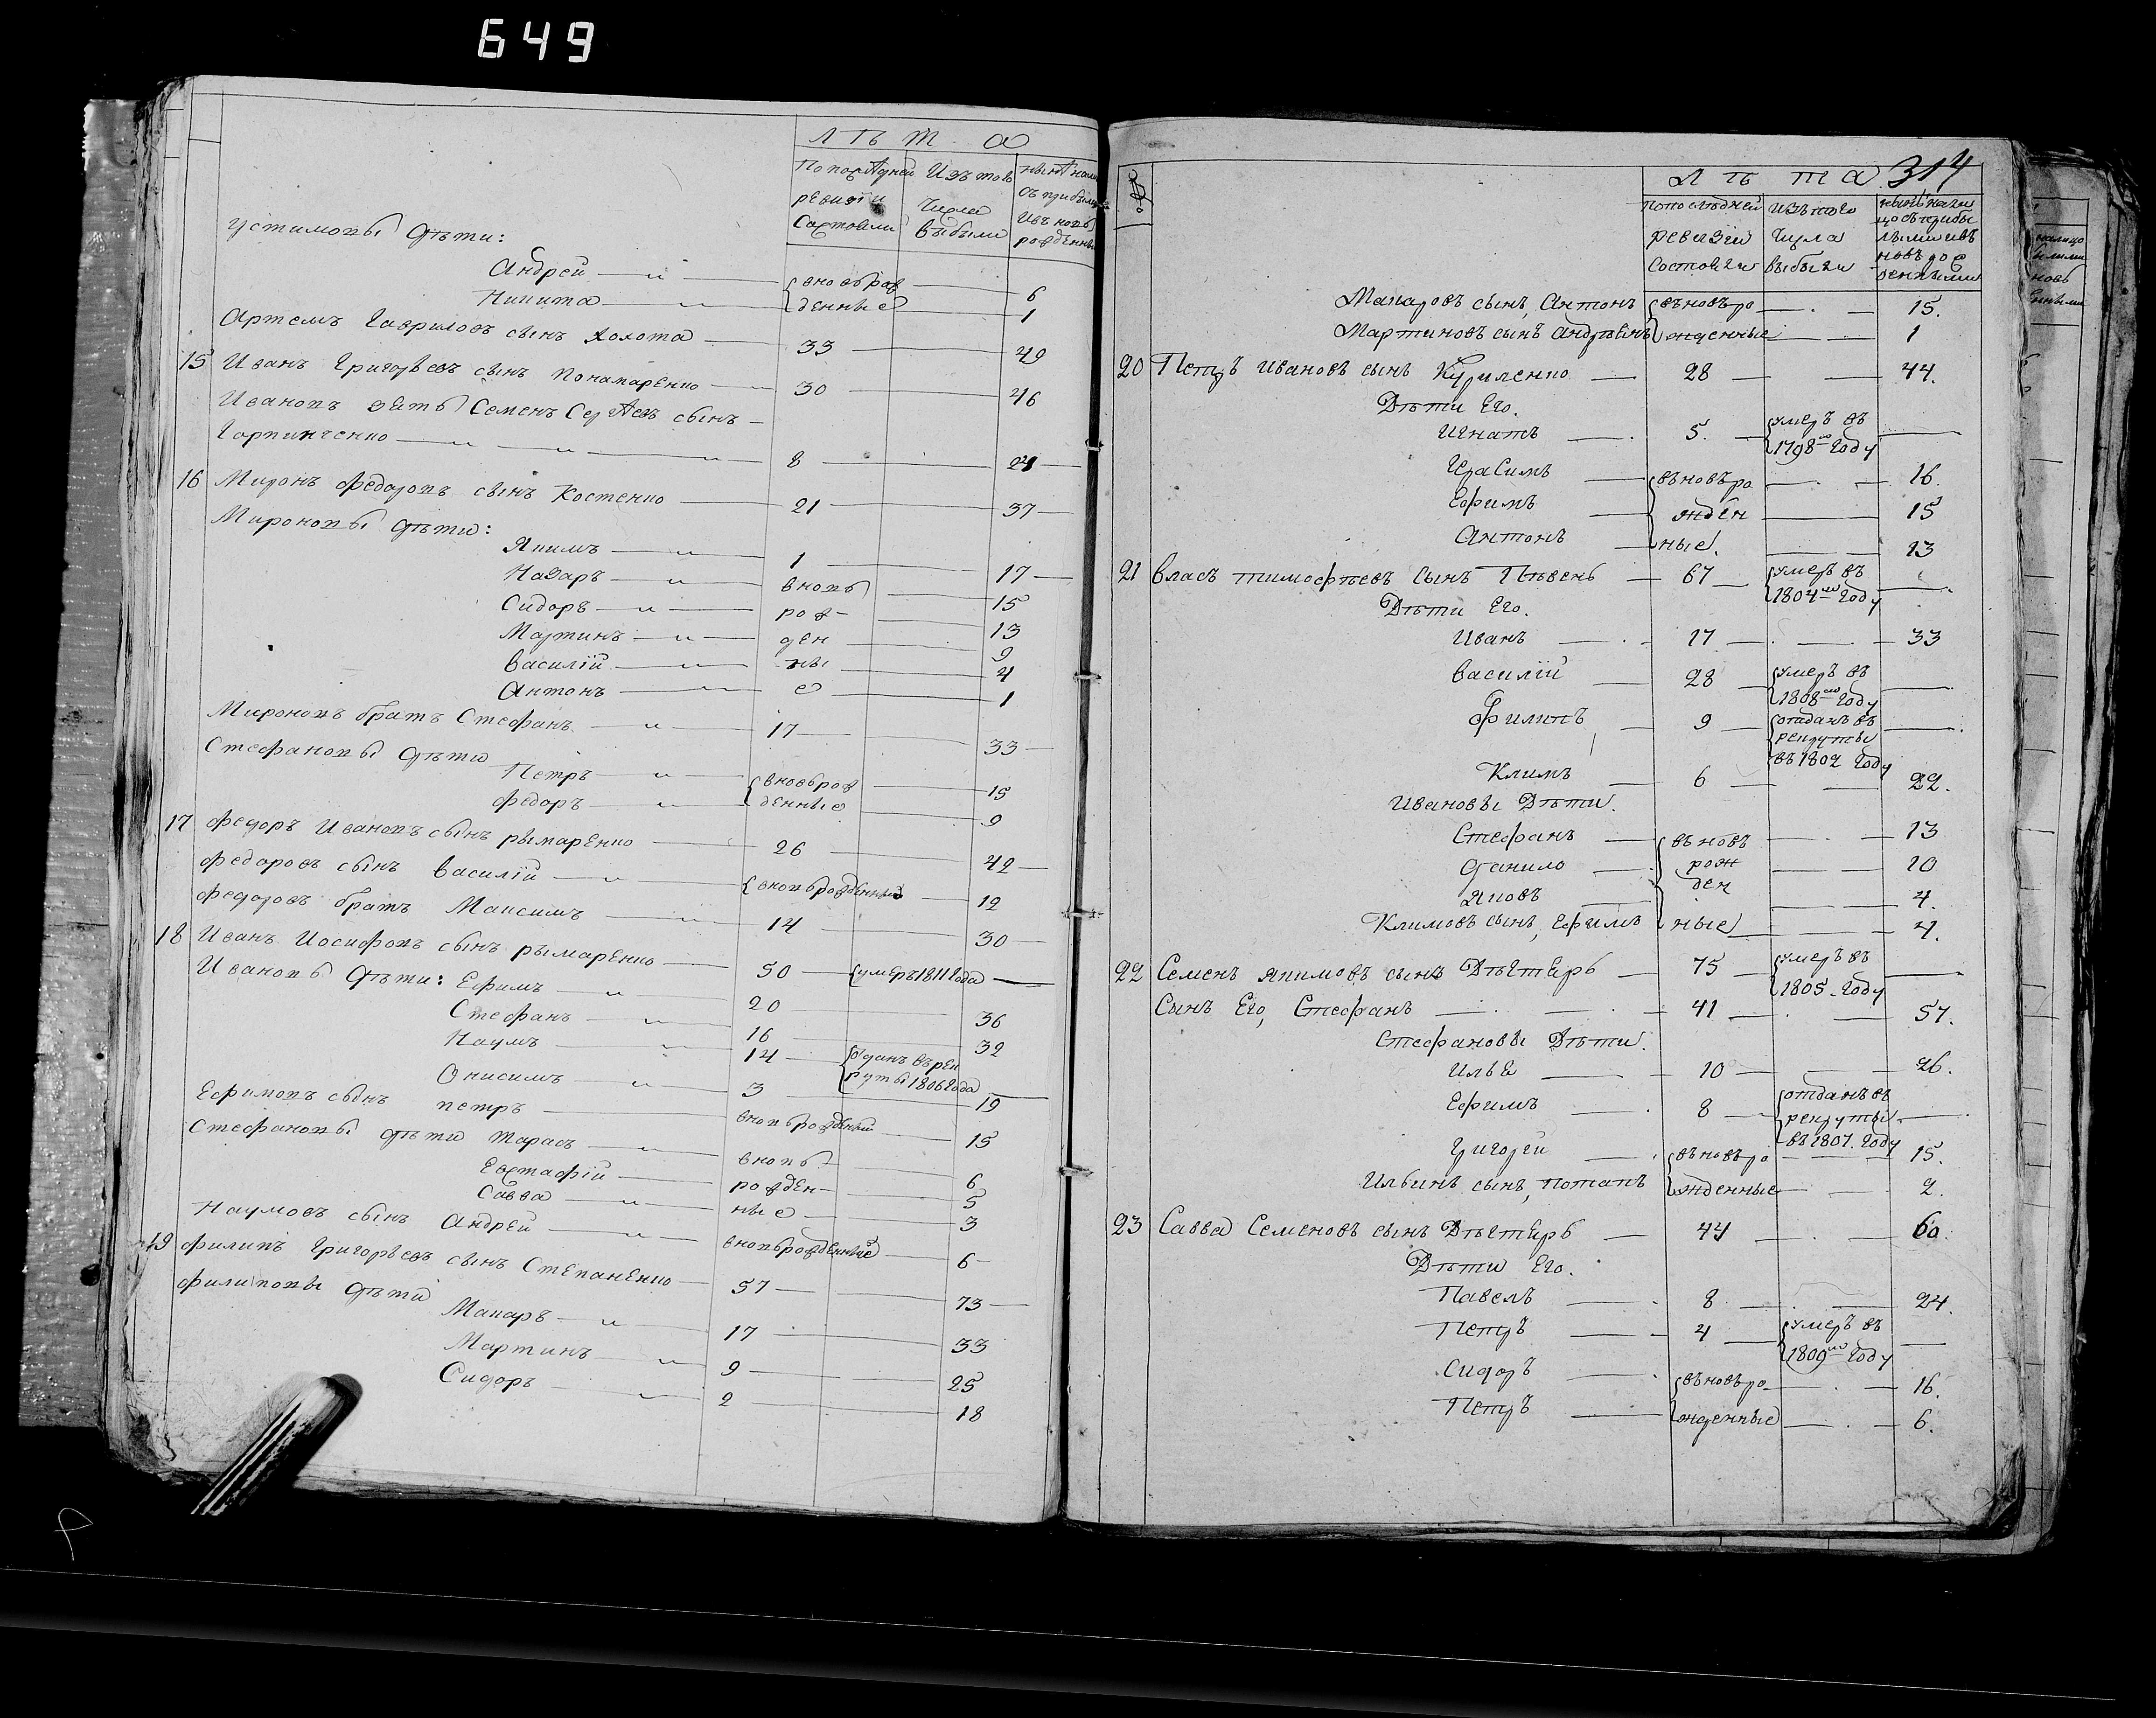 649
Лѣта
По последней ревизіи состояли
Изъ того числа выбыли
Устимовы дѣти:
Андрей — вновьрож 6
Никита — денные 1
Артемъ Гавриловъ сынъ Холота — 33 — 49
15 Иванъ Григорьевъ сынъ Понамаренко — 30 — 46
Ивановъ зять Семенъ Сергѣевъ сынъ
Горпинченко — 8 — 24
16 Миронъ Федоровъ сынъ Костенко — 21 — 37
Мироновы дѣти:
Якимъ — 1 — 17
Назаръ — вновь — 15
Сидоръ — рож — 13
Мартинъ — ден — 9
Василій — ны — 4
Антонъ — е — 1
Мироновъ братъ Стефанъ — 17 — 33
Стефановы дѣти
Петръ — вновьрож — 15
Федоръ — денные — 9
17 Федоръ Ивановъ сынъ Рымаренко — 26 — 42
Федоровъ сынъ Василій — вновьрожденный — 12
Федоровъ братъ Максимъ — 14 — 30
18 Иванъ Иосифовъ сынъ Рымаренко — 50 — умеръ 1811 года —
Ивановы дѣти: Ефимъ — 20 — 36
Стефанъ — 16 — 32
Наумъ — 14 — отданъ въ рек
руты 1806 года
Онисимъ — 3 — 19
Ефимовъ сынъ Петръ — вновьрожденный — 15
Стефановы дѣти Тарасъ — вновь — 6
Евстафій — рожден — 5
Савва — ные — 3
Наумовъ сынъ Андрей — вновьрожденный — 6
19 Филипъ Григорьевъ сынъ Степаненко — 57 — 73
Филиповы дѣти
Макаръ — 17 — 33
Мартинъ — 9 — 25
Сидоръ — 2 — 18
314
№
Лѣта
По последней ревизіи состояли
Изъ того числа выбыли
Макаровъ сынъ, Антонъ въновьро — 15.
Мартиновъ сынъ Андреянъ жденные — 1
20 Петръ Ивановъ сынъ Куриленко — 28 — 44.
Дѣти Его.
Игнатъ — 5. — умеръ въ
1798го Году
Герасимъ — въновьро — 16.
Ефимъ — жден — 15
Антонъ — ные. — 13
21 Власъ Тимофѣевъ сынъ Пѣвень — 67 — умеръ въ
1804го Году
Дѣти Его.
Иванъ — 17 — 33
Василій — 28 — умеръ въ
1808го Году
Филипъ — 9 — отданъ въ
рекруты
въ 1802 Году
Климъ — 6 — 22.
Ивановы Дѣти.
Стефанъ — въновь — 13
Данило — рож — 10
Яковъ — ден — 4.
Климовъ сынъ, Ефимъ ные — 4.
22 Семенъ Якимовъ сынъ Дѣхтерь — 75 — умеръ въ
1805. Году
Сынъ Его, Стефанъ — 41 — 57.
Стефановы Дѣти.
Илья — 10 — 26.
Ефимъ — 8 — отданъ въ
рекруты
въ 1807. Году
Григорей — въновьро — 15.
Ильинъ сынъ, Потапъ жденные — 2.
23 Савва Семеновъ сынъ Дѣхтерь — 44 — 60.
Дѣти Его.
Павелъ — 8 — 24.
Петръ — 4 — умеръ въ
1809го Году
Сидоръ — въновьро — 16.
Петръ — жденные — 6.